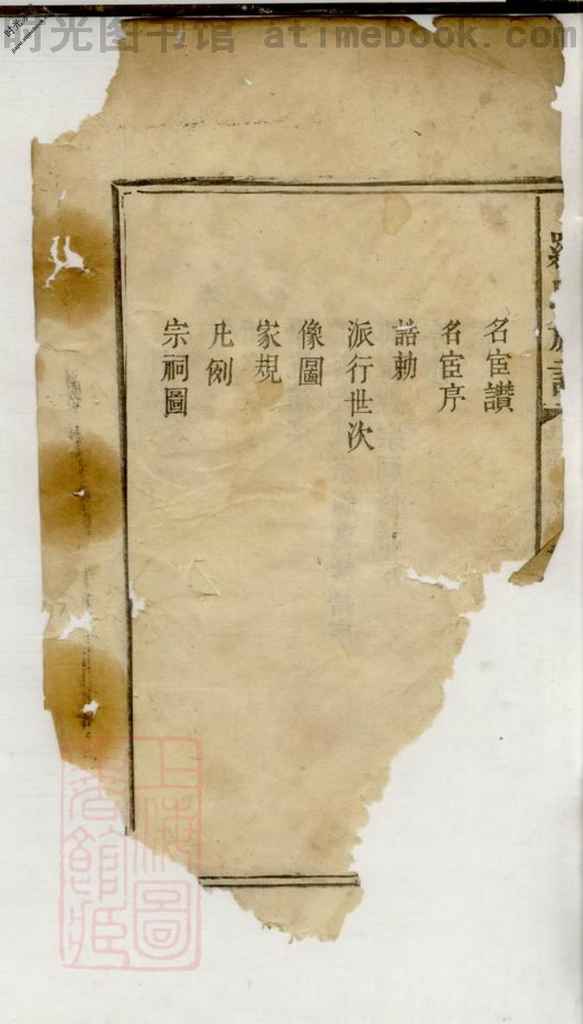 时光图书馆 atimebook.com
名宦讃
名宦序
誥勅
派行世次
像圖
家規
凡例
宗祠圖